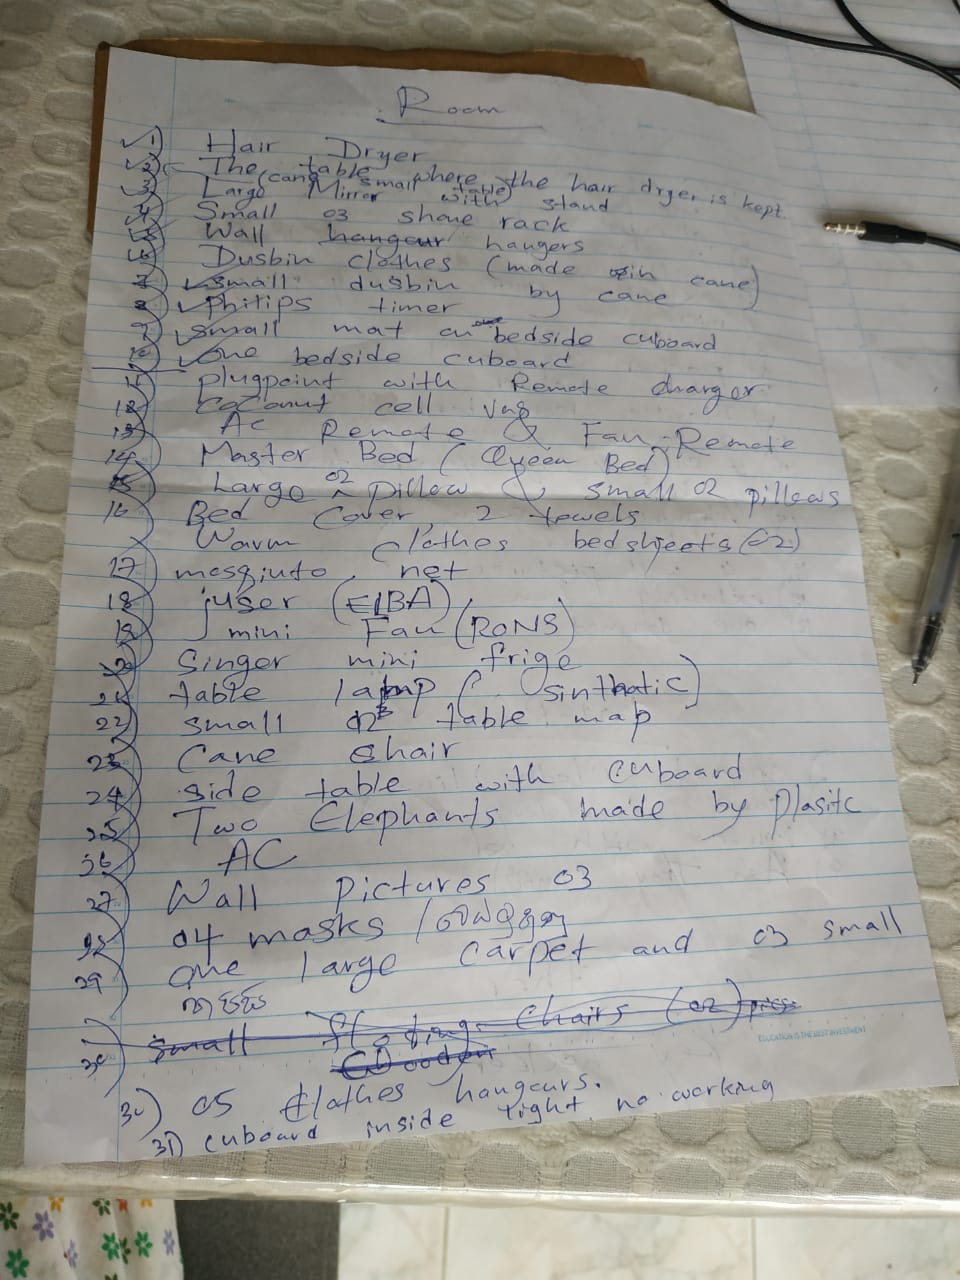 Room
1) Hair Dryer
2) The table where the hair dryer is kept
(cane small table)
3) Large Mirror with stand
4) Small 03 shoue rack
5) Wall hangeur hangers
6) Dusbin clothes (made in cane)
7) small dusbin by cane
8) Philips timer
9) small mat on bedside cuboard
10) one bedside cuboard
11) Plugpoint with Remote charger
12) Coconut cell
13) AC Remote & Fan-Remote
14) Master Bed (Queen Bed)
15) Large 02 pillow & small 02 pillows
16) Bed Cover 2 towels
Warm Clothes bedshjects (02)
17) mosqiuto net
18) juser (EIBA)
19) mini Fan (RONS)
20) Singer mini frige
21) table lamp (sinthatic)
22) small table map
23) Cane chair
24) side table with cuboard
25) Two Elephants made by Plasitc
26) AC
27) Wall Pictures 03
28) 04 masks /
29) one large carpet and 03 small
30) small floting chairs (02) pics
Wooden
30) 05 Clothes hangeurs.
31) cuboard inside light no working
EDUCATION IS THE BEST INVESTMENT